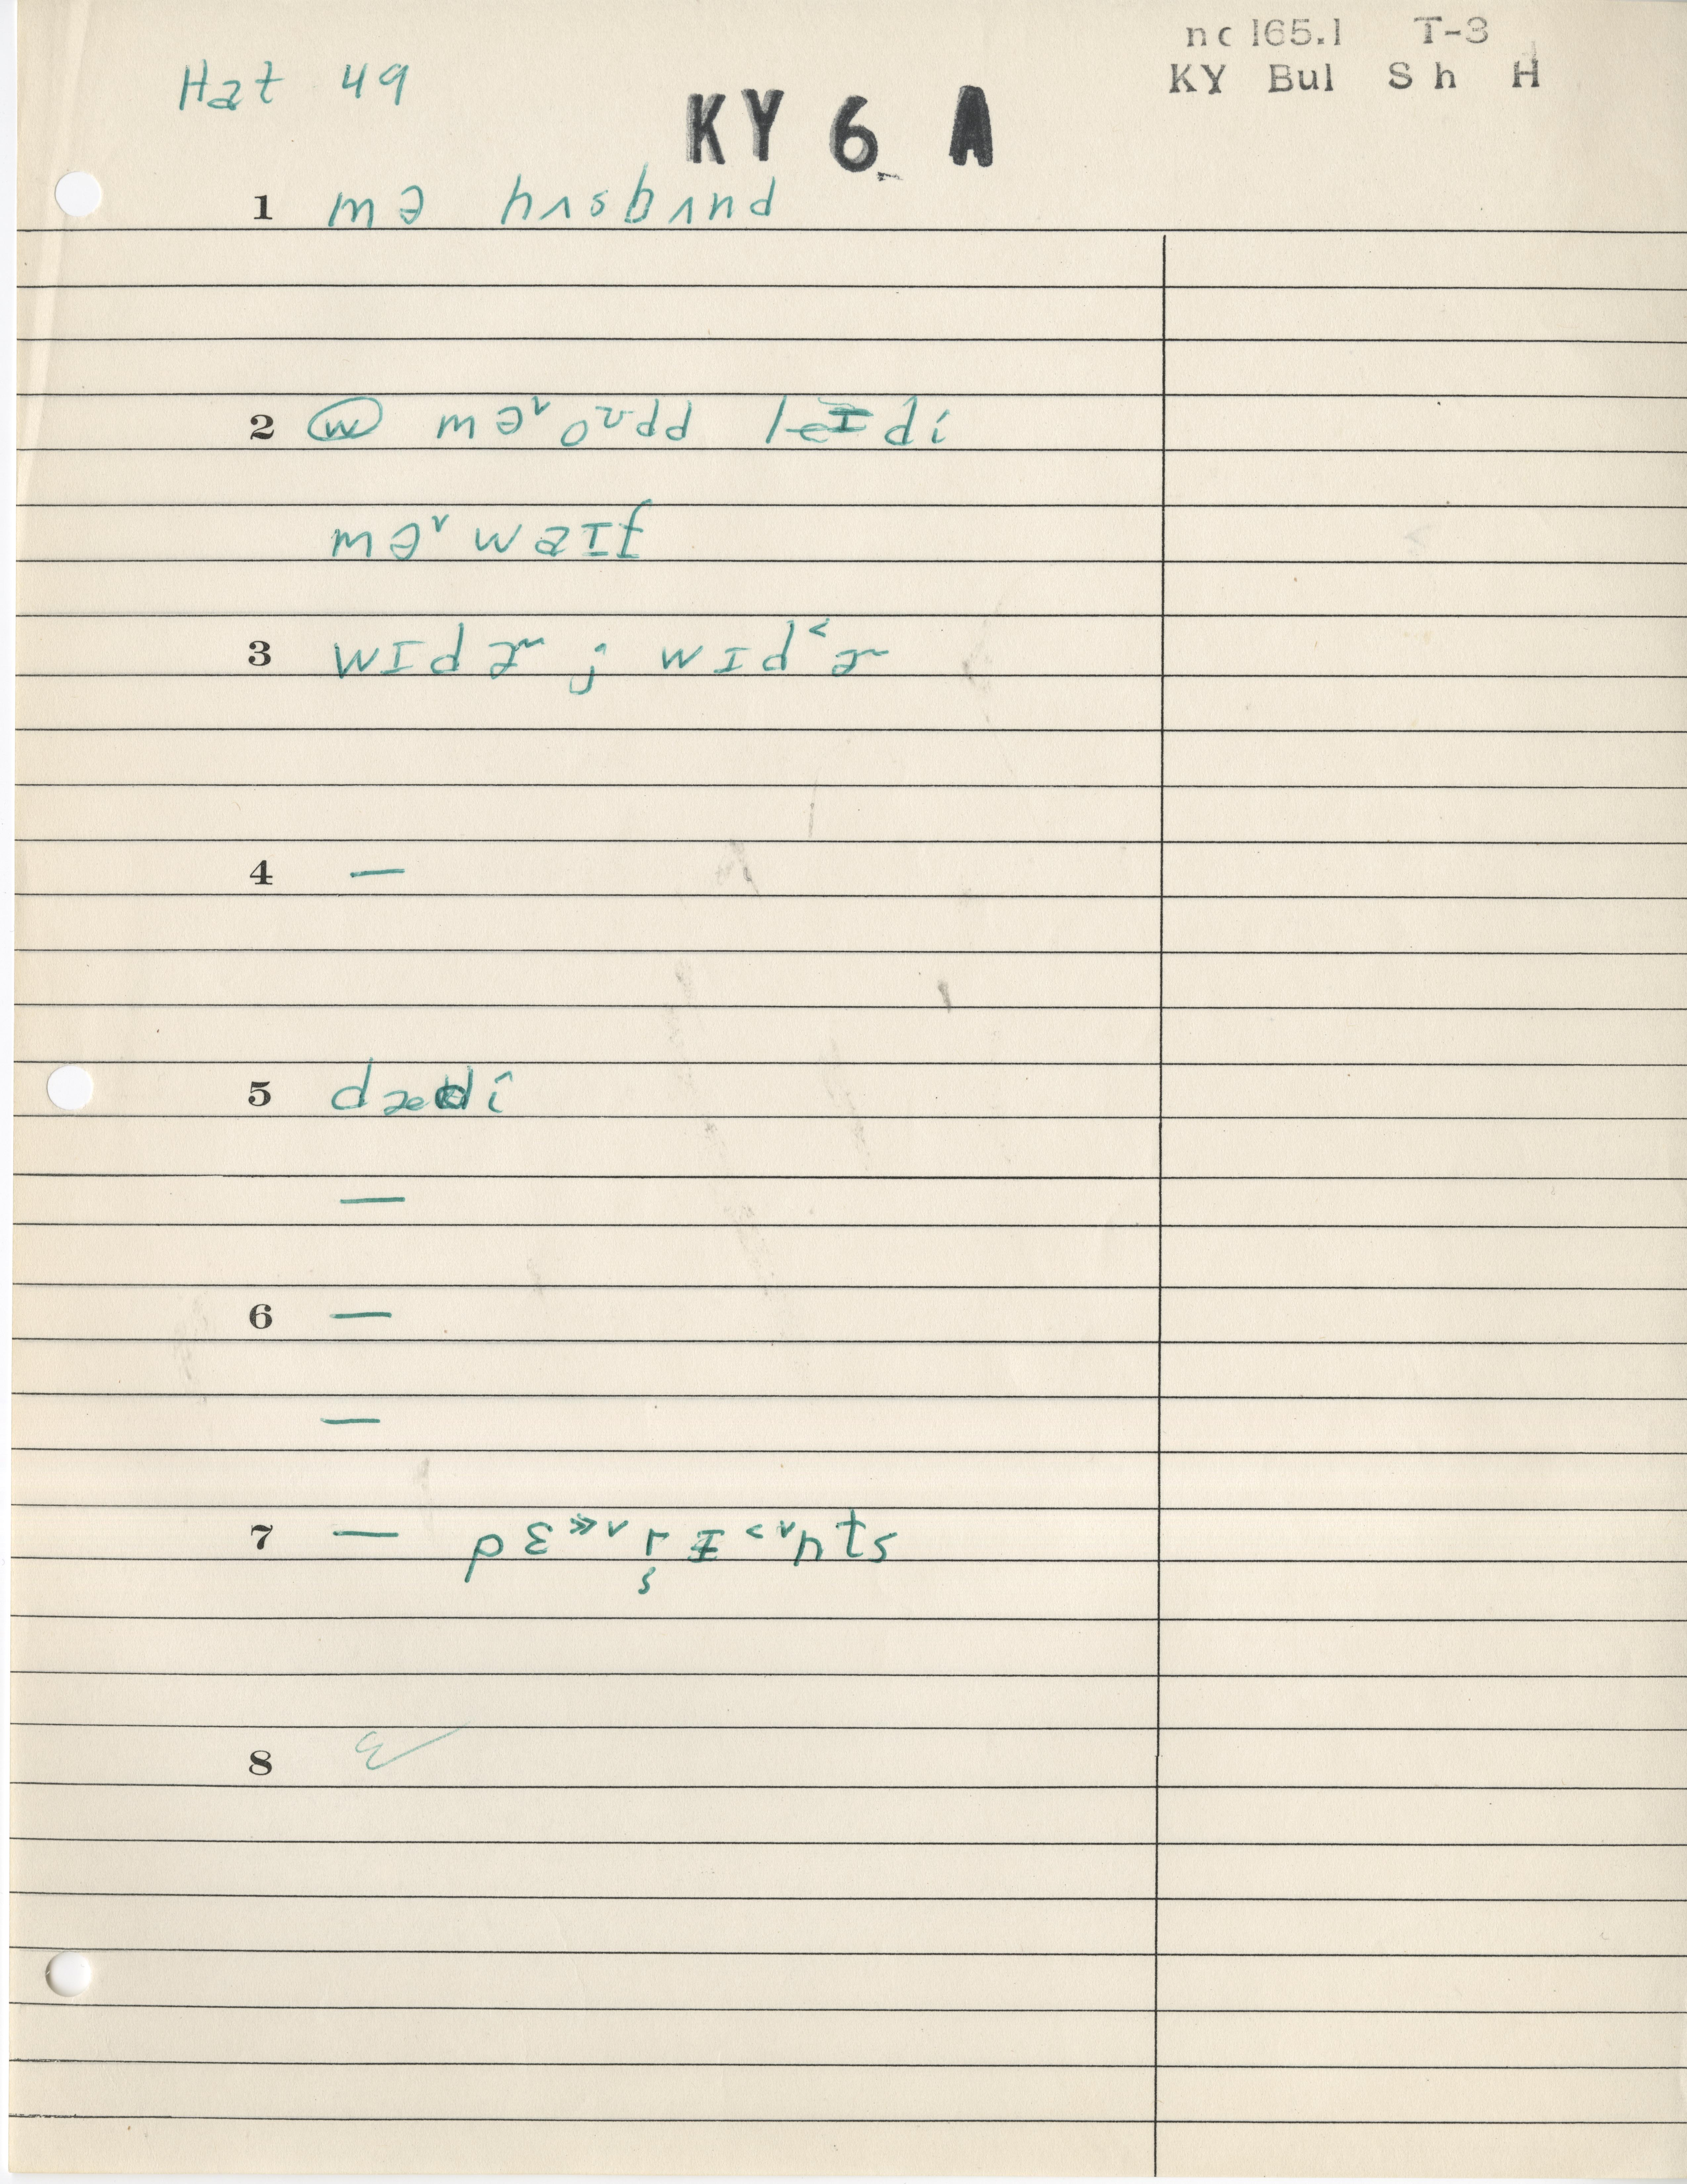 nc 165.1 T-3
Hat 49 KY Bul Sh H
KY 6 A
1 mə hʌsbʌnd
2 ⓦ mə˅ oᶷdd leɪdi
mə˅ waɪf
3 wɪdɚ ; wɪd˂ɚ
4 —
5 dædi
—
6 —
—
7 — pɛ˃˃˅ɹɨ˂˅nts
8